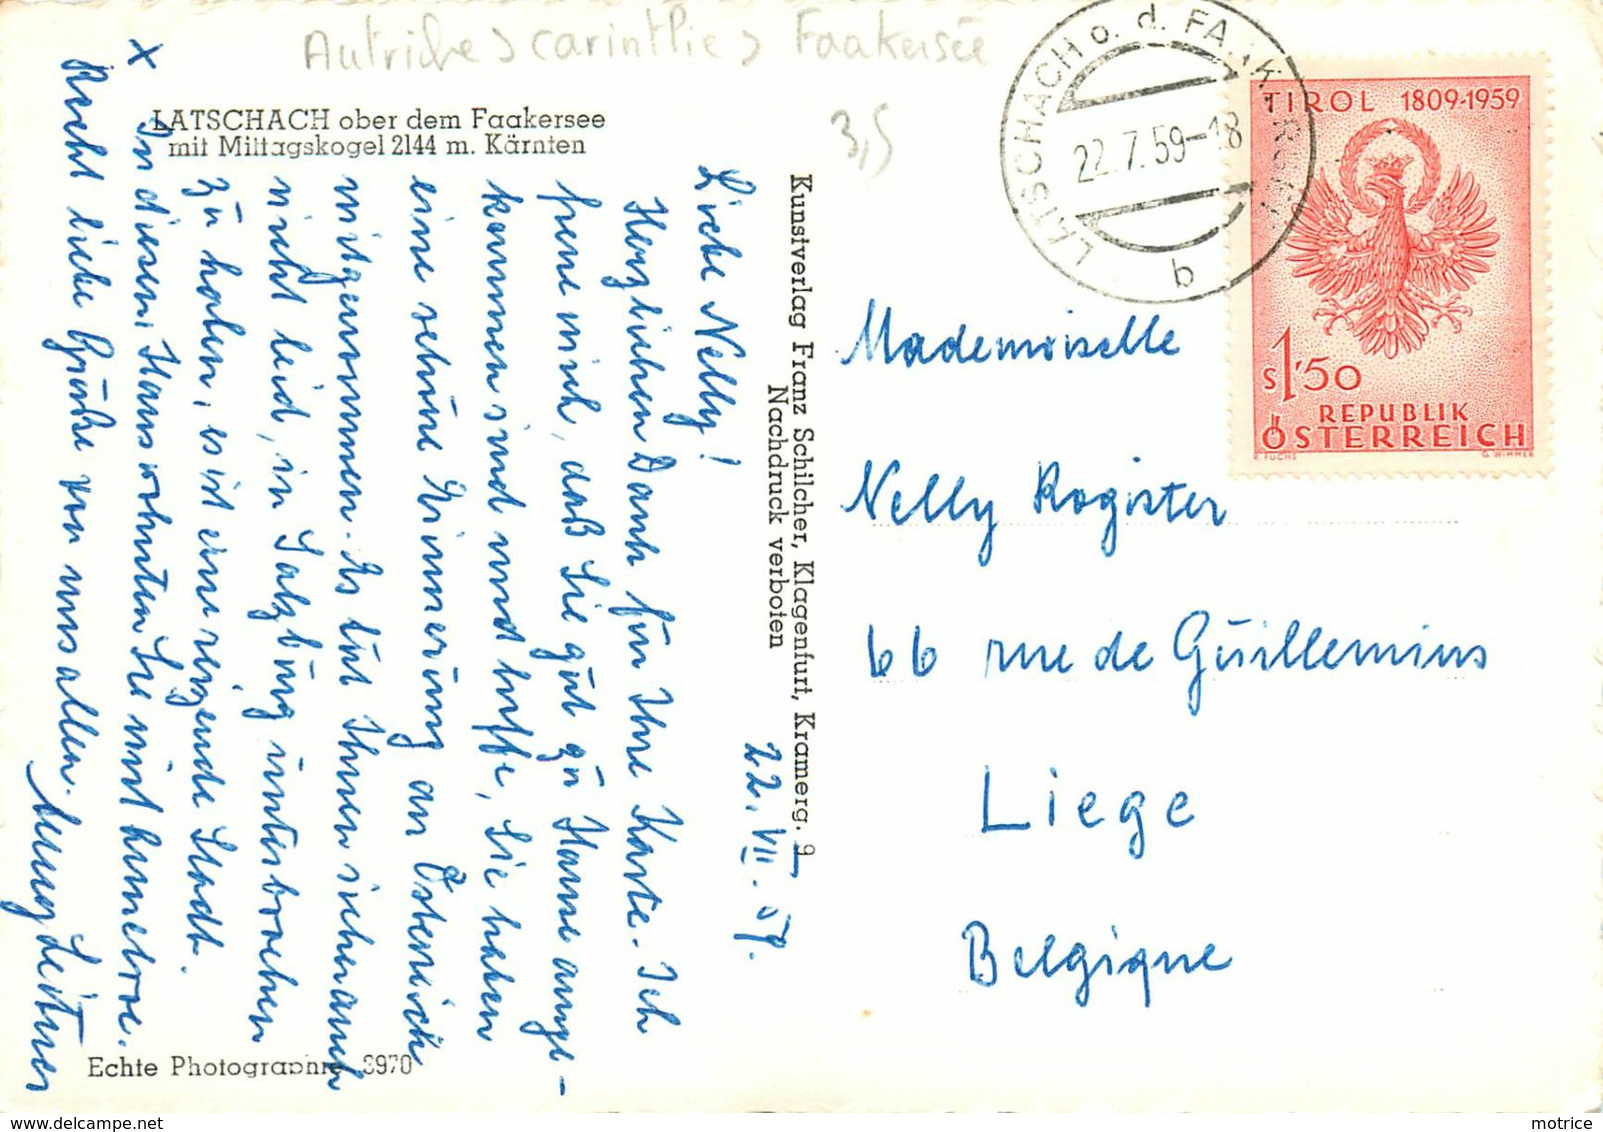 Autriche > carinthie > Faakersee
3,5
LATSCHACH ober dem Faakersee
mit Mittagskogel 2144 m. Kärnten
22. VII. 59.
Liebe Nelly!
Herzlichen Dank für Ihre Karte. Ich
freue mich, daß Sie gut zu Hause ange-
kommen sind und hoffe, Sie haben
eine schöne Erinnerung an Österreich
mitgenommen. Es tut Ihnen sicher auch
nicht leid, in Salzburg unterbrochen
zu haben, es ist eine reizende Stadt.
x In diesem Haus wohnten Sie mit
Recht liebe Grüße von uns allen.
Leitner
Echte Photographie 3970
Kunstverlag Franz Schilcher, Klagenfurt, Kramerg. 9
Nachdruck verboten
LATSCHACH o. d. FAAK
22.7.59-18
b
TIROL 1809-1959
S 1'50
REPUBLIK
ÖSTERREICH
R. FUCHS G. WIMMER
Mademoiselle
Nelly Rogister
66 rue de Guillemins
Liege
Belgique
motrice